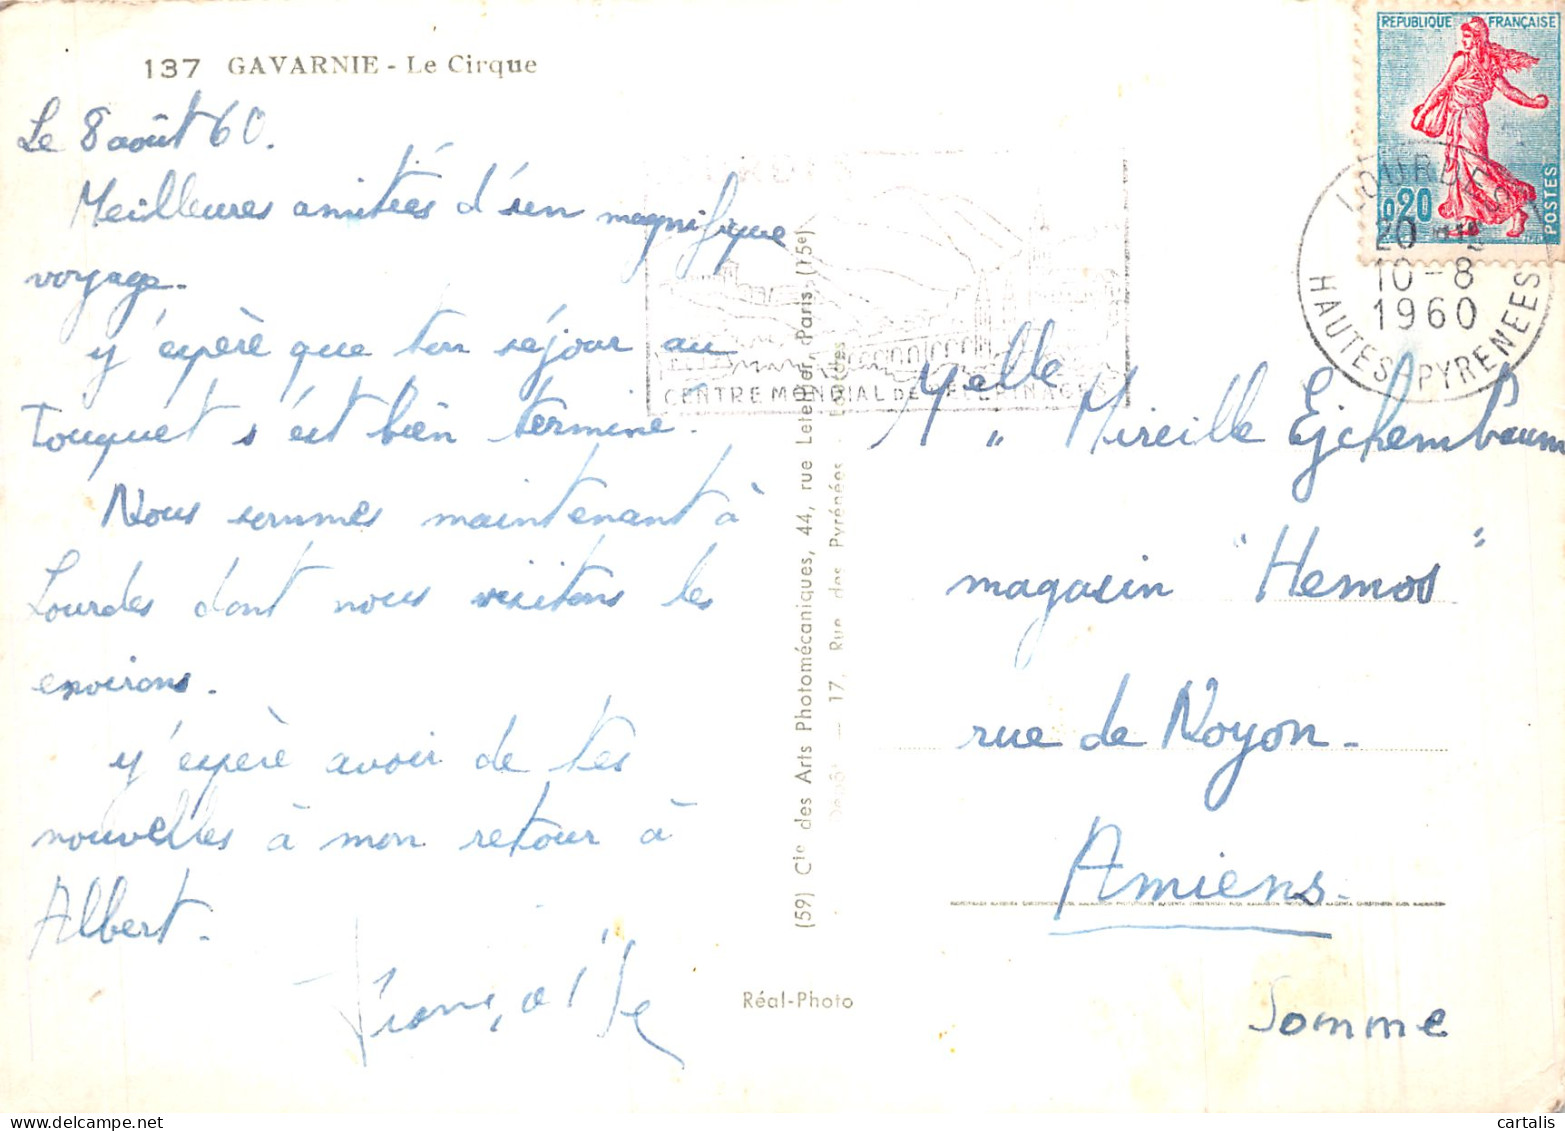 137 GAVARNIE - Le Cirque
Le 8 août 60.
Meilleures amitiés d'un magnifique
voyage.
y'espère que ton séjour au
Touquet s'est bien terminé.
Nous sommes maintenant à
Lourdes dont nous visitons les
environs.
y'espère avoir de tes
nouvelles à mon retour à
Albert.
(59) Cie des Arts Photomécaniques, 44, rue Letellier, Paris (15e)
17, Rue des Pyrénées - Lourdes
Réal-Photo
CENTRE MONDIAL DE PELERINAGES
REPUBLIQUE FRANÇAISE
0,20
POSTES
LOURDES
20 H
10-8
1960
HAUTES PYRENEES
Melle Mireille Ejchembaum
magasin "Hemos"
rue de Noyon -
Amiens -
Somme
cartalis | Delcampe.net